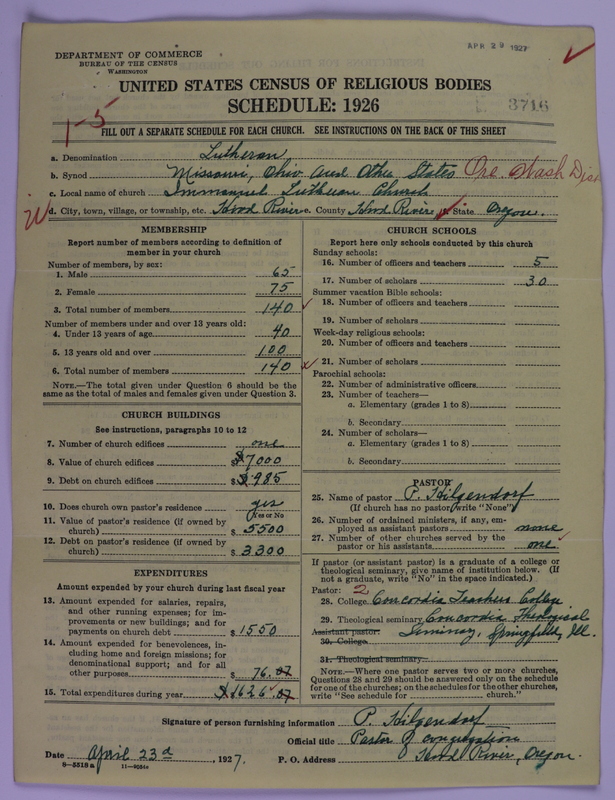 APR 29 1927
DEPARTMENT OF COMMERCE
BUREAU OF THE CENSUS
WASHINGTON
UNITED STATES CENSUS OF RELIGIOUS BODIES
SCHEDULE: 1926
3716
1-5
FILL OUT A SEPARATE SCHEDULE FOR EACH CHURCH. SEE INSTRUCTIONS ON THE BACK OF THIS SHEET
a. Denomination Lutheran
b. Synod Missouri, Ohio and Other States Ore. & Wash Dist
c. Local name of church Immanuel Lutheran Church
d. City, town, village, or township, etc. Hood River e. County Hood River State Oregon.
MEMBERSHIP
Report number of members according to definition of
member in your church
Number of members, by sex:
1. Male 65
2. Female 75
3. Total number of members 140
Number of members under and over 13 years old:
4. Under 13 years of age 40
5. 13 years old and over 100
6. Total number of members 140
NOTE.—The total given under Question 6 should be the
same as the total of males and females given under Question 3.
CHURCH BUILDINGS
See instructions, paragraphs 10 to 12
7. Number of church edifices one
8. Value of church edifices $7000
9. Debt on church edifices $985
10. Does church own pastor's residence? yes
Yes or No
11. Value of pastor's residence (if owned by
church) $5500
12. Debt on pastor's residence (if owned by
church) $3300
EXPENDITURES
Amount expended by your church during last fiscal year
13. Amount expended for salaries, repairs,
and other running expenses; for im-
provements or new buildings; and for
payments on church debt $1550
14. Amount expended for benevolences, in-
cluding home and foreign missions; for
denominational support; and for all
other purposes $76.07
15. Total expenditures during year $1626.07
CHURCH SCHOOLS
Report here only schools conducted by this church
Sunday schools:
16. Number of officers and teachers 5
17. Number of scholars 30
Summer vacation Bible schools:
18. Number of officers and teachers
19. Number of scholars
Week-day religious schools:
20. Number of officers and teachers
21. Number of scholars
Parochial schools:
22. Number of administrative officers
23. Number of teachers—
a. Elementary (grades 1 to 8)
b. Secondary
24. Number of scholars—
a. Elementary (grades 1 to 8)
b. Secondary
PASTOR
25. Name of pastor P. Hilgendorf
(If church has no pastor, write "None")
26. Number of ordained ministers, if any, em-
ployed as assistant pastors none
27. Number of other churches served by the
pastor or his assistants one
If pastor (or assistant pastor) is a graduate of a college or
theological seminary, give name of institution below. (If
not a graduate, write "No" in the space indicated.)
Pastor: 2
28. College Concordia Teachers College
29. Theological seminary Concordia Theological
Assistant pastor: Seminary, Springfield, Ill.
30. College
31. Theological seminary
NOTE.—Where one pastor serves two or more churches,
Questions 28 and 29 should be answered only on the schedule
for one of the churches; on the schedules for the other churches,
write "See schedule for church."
Signature of person furnishing information P. Hilgendorf
Official title Pastor of congregation
Date April 23d, 1927. P. O. Address Hood River, Oregon.